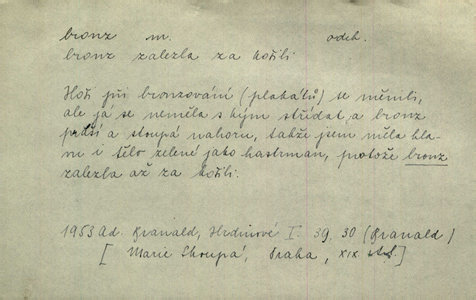 bronz m. odch.
bronz zalezla za košili
Hoši při bronzování (plakátů) se měnili,
ale já se neměla s kým střídat, a bronz
práší a stoupá nahoru, takže jsem měla hla-
vu i tělo zelené jako hastrman, protože bronz
zalezla až za košili.
1953 Ad. Branald, Hrdinové I. 39, 30 (Branald)
[ Marie Skoupá, Praha, XIX. ]